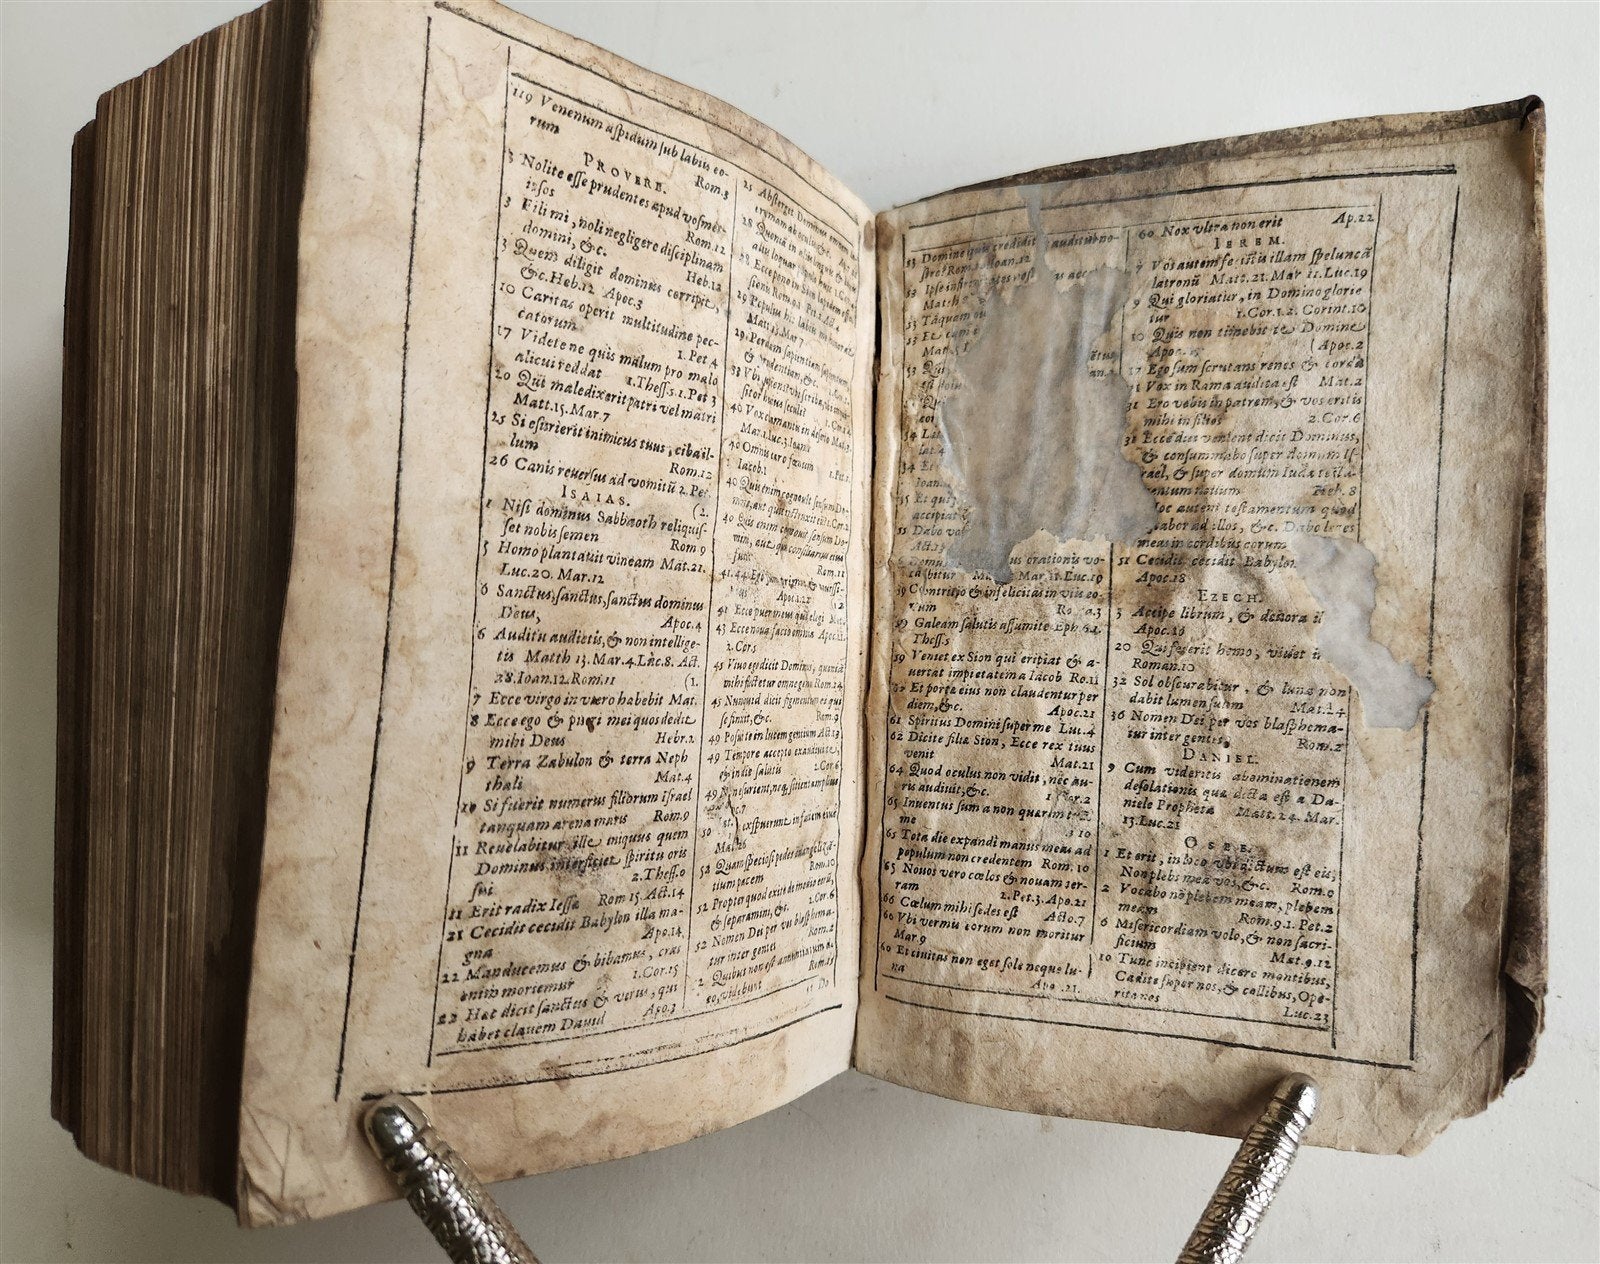 119 Venenum aſpidum ſub labiis eo-
rum Rom.3
PROVERB.
3 Nolite eſſe prudentes apud voſmet-
ipſos Rom.12
3 Fili mi, noli negligere diſciplinam
domini, &c. Heb.12
3 Quem diligit dominus corripit,
&c. Heb.12 Apoc.3
10 Caritas operit multitudinē pec-
catorum 1.Pet 4
17 Videte ne quis malum pro malo
alicui reddat 1.Theſſ.5.1.Pet 3
20 Qui maledixerit patri vel matri
Matt.15.Mar.7
25 Si eſurierit inimicus tuus, ciba il-
lum Rom.12
26 Canis reuerſus ad vomitū 2.Pet.
ISAIAS. (2.
1 Niſi dominus Sabbaoth reliquiſ-
ſet nobis ſemen Rom 9
5 Homo plantauit vineam Mat.21.
Luc.20. Mar.12
6 Sanctus, ſanctus, ſanctus dominus
Deus, Apoc.4
6 Auditu audietis, & non intellige-
tis Matth 13. Mar.4.Luc.8. Act.
28.Ioan.12.Rom.11 (1.
7 Ecce virgo in vtero habebit Mat.
8 Ecce ego & pueri mei quos dedit
mihi Deus Hebr.2
9 Terra Zabulon & terra Neph
thali Mat.4
10 Si fuerit numerus filiorum Iſrael
tanquam arena maris Rom.9
11 Reuelabitur ille iniquus quem
Dominus interficiet ſpiritu oris
ſui 2.Theſſ.
11 Erit radix Ieſſe Rom 15.Act.14
21 Cecidit cecidit Babylon illa ma-
gna Apo.14.
22 Manducemus & bibamus, cras
enim moriemur 1.Cor.15
22 Hæc dicit ſanctus & verus, qui
habet clauem Dauid Apo.3
25 Abſterget Dominus omnem
28 Quonia in aliis
aliis loquar
28 Ecce pono in Sion lapidem
29 Populus hic labiis me honorat
Mat.15.Mar 7
29 Perdam ſapientiam ſapientum,
& prudentiam, &c.
33 Vbi ſapiens? vbi ſcriba, vbi
ſitor huius ſeculi?
40 Vox clamantis in deſerto Mat.3.
Mar.1.Luc.3.Ioan.1
40 Omnis caro fœnum 1.Pet.1.
Iacob.1
40 Quis enim cognouit ſenſum Do-
40 Quis enim cognouit ſenſum Do-
mini, aut quis conſiliarius eius
fuit Rom.11
41. 44 Ego ſum primus & nouiſſi-
mus Apoc.1.22
41 Ecce puer meus quē elegi Mat.
43 Ecce noua facio omnia Apoc.21
2.Cor.5
45 Viuo ego dicit Dominus, quoniā
mihi flectetur omne genu Rom.14
45 Nunquid dicit figmentum ei qui
ſe finxit, &c. Rom.9
49 Poſui te in lucem gentium Act.13
49 Tempore accepto exaudiui te,
& in die ſalutis 2.Cor.6
49 Non eſurient, neq; ſitient amplius
50 exſpuerunt in faciem eius
Mat.26
52 Quam ſpecioſi pedes euangeliza-
tium pacem Rom.10
52 Propter quod exite de medio eorū,
& ſeparamini, &c. 2.Cor.6
52 Nomen Dei per vos blaſphema-
tur inter gentes Rom.2
52 Quibus non eſt annunciatum de
eo, videbunt Rom.15
53 Domine quis credidit auditui no-
ſtro? Rom. Ioan.12
53 Ipſe infirmitates noſt
Matth
53 Tāquam ou
53 Et cum i
Mat.
53 Qui
54
54 Et
Ioan.
55 Et qui
accipiat
55 Dabo vob
Act.13
56 Domus mea domus orationis vo-
cabitur Mat Mar.11.Luc.19
59 Contritio & infelicitas in viis eo-
rum Rom.3
59 Galeam ſalutis aſſumite Eph.6.1.
Theſſ.5
59 Veniet ex Sion qui eripiat & a-
uertat impietatem a Iacob Ro.11
60 Et portæ eius non claudentur per
diem, &c. Apoc.21
61 Spiritus Domini ſuper me Luc.4
62 Dicite filiæ Sion, Ecce rex tuus
venit Mat.21
64 Quod oculus non vidit, nec au-
ris audiuit, &c. 1 Cor.2
65 Inuentus ſum a non quærentib.
me 10
65 Tota die expandi manus meas ad
populum non credentem Rom.10
65 Nouos vero cœlos & nouam ter-
ram 2.Pet.3.Apo.21
66 Cœlum mihi ſedes eſt Acto.7
66 Vbi vermis eorum non moritur
Mar 9
60 Et ciuitas non eget ſole neque lu-
na Apo.21.
60 Nox vltra non erit Ap.22
IEREM.
7 Vos autem feciſtis illam ſpeluncā
latronū Matt.21.Mar 11.Luc.19
9 Qui gloriatur, in Domino glorie
tur 1.Cor.1.2. Corint.10
10 Quis non timebit te Domine
Apoc.15 (Apoc.2
17 Ego ſum ſcrutans renes & corda
31 Vox in Rama audita eſt Mat.2
31 Ero vobis in patrem, & vos eritis
mihi in filios 2.Cor.6
31 Ecce dies venient dicit Dominus,
& conſummabo ſuper domum Iſ-
rael, & ſuper domum Iuda teſta-
mentum nouum Heb.8
Hoc autem teſtamentum quod
&c. Dabo leges
meas in cordibus eorum
51 Cecidit cecidit Babylon
Apoc.18
EZECH.
3 Accipe librum, & deuora il
Apoc.10
20 Qui fecerit homo, viuet i
Roman.10
32 Sol obſcurabitur, & luna non
dabit lumen ſuum Mat.24
36 Nomen Dei per vos blaſphema-
tur inter gentes Rom.2
DANIEL.
9 Cum videritis abominationem
deſolationis quæ dicta eſt a Da-
niele Propheta Matt.24. Mar.
13.Luc.21
OSEE.
1 Et erit, in loco vbi dictum eſt eis;
Non plebs mea vos, &c. Rom.9
2 Vocabo nō plebem meam, plebem
meam Rom.9.1.Pet.2
6 Miſericordiam volo, & non ſacri-
ficium Mat.9.12
10 Tunc incipient dicere montibus,
Cadite ſuper nos, & collibus, Ope-
rite nos Luc.23